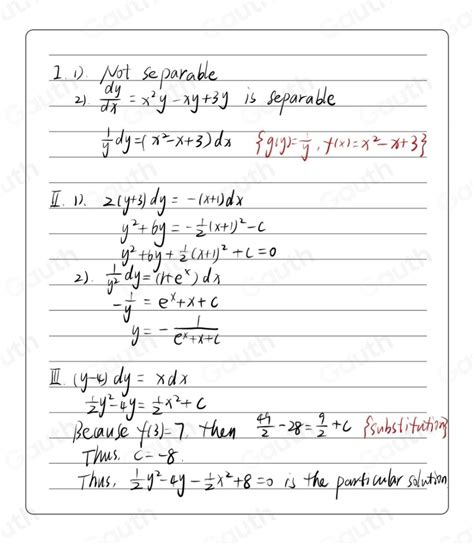 I. 1). Not separable
2) dy/dx = x²y - xy + 3y is separable
1/y dy = (x² - x + 3) dx {g(y) = 1/y, f(x) = x² - x + 3}
II. 1). 2(y+3) dy = -(x+1) dx
y² + 6y = -1/2 (x+1)² - C
y² + 6y + 1/2 (x+1)² + C = 0
2). 1/y² dy = (1+eˣ) dx
-1/y = eˣ + x + C
y = - 1/(eˣ + x + C)
III. (y-4) dy = x dx
1/2 y² - 4y = 1/2 x² + C
Because f(3) = 7, then 49/2 - 28 = 9/2 + C {substitution}
Thus, C = -8.
Thus, 1/2 y² - 4y - 1/2 x² + 8 = 0 is the particular solution
Gauth